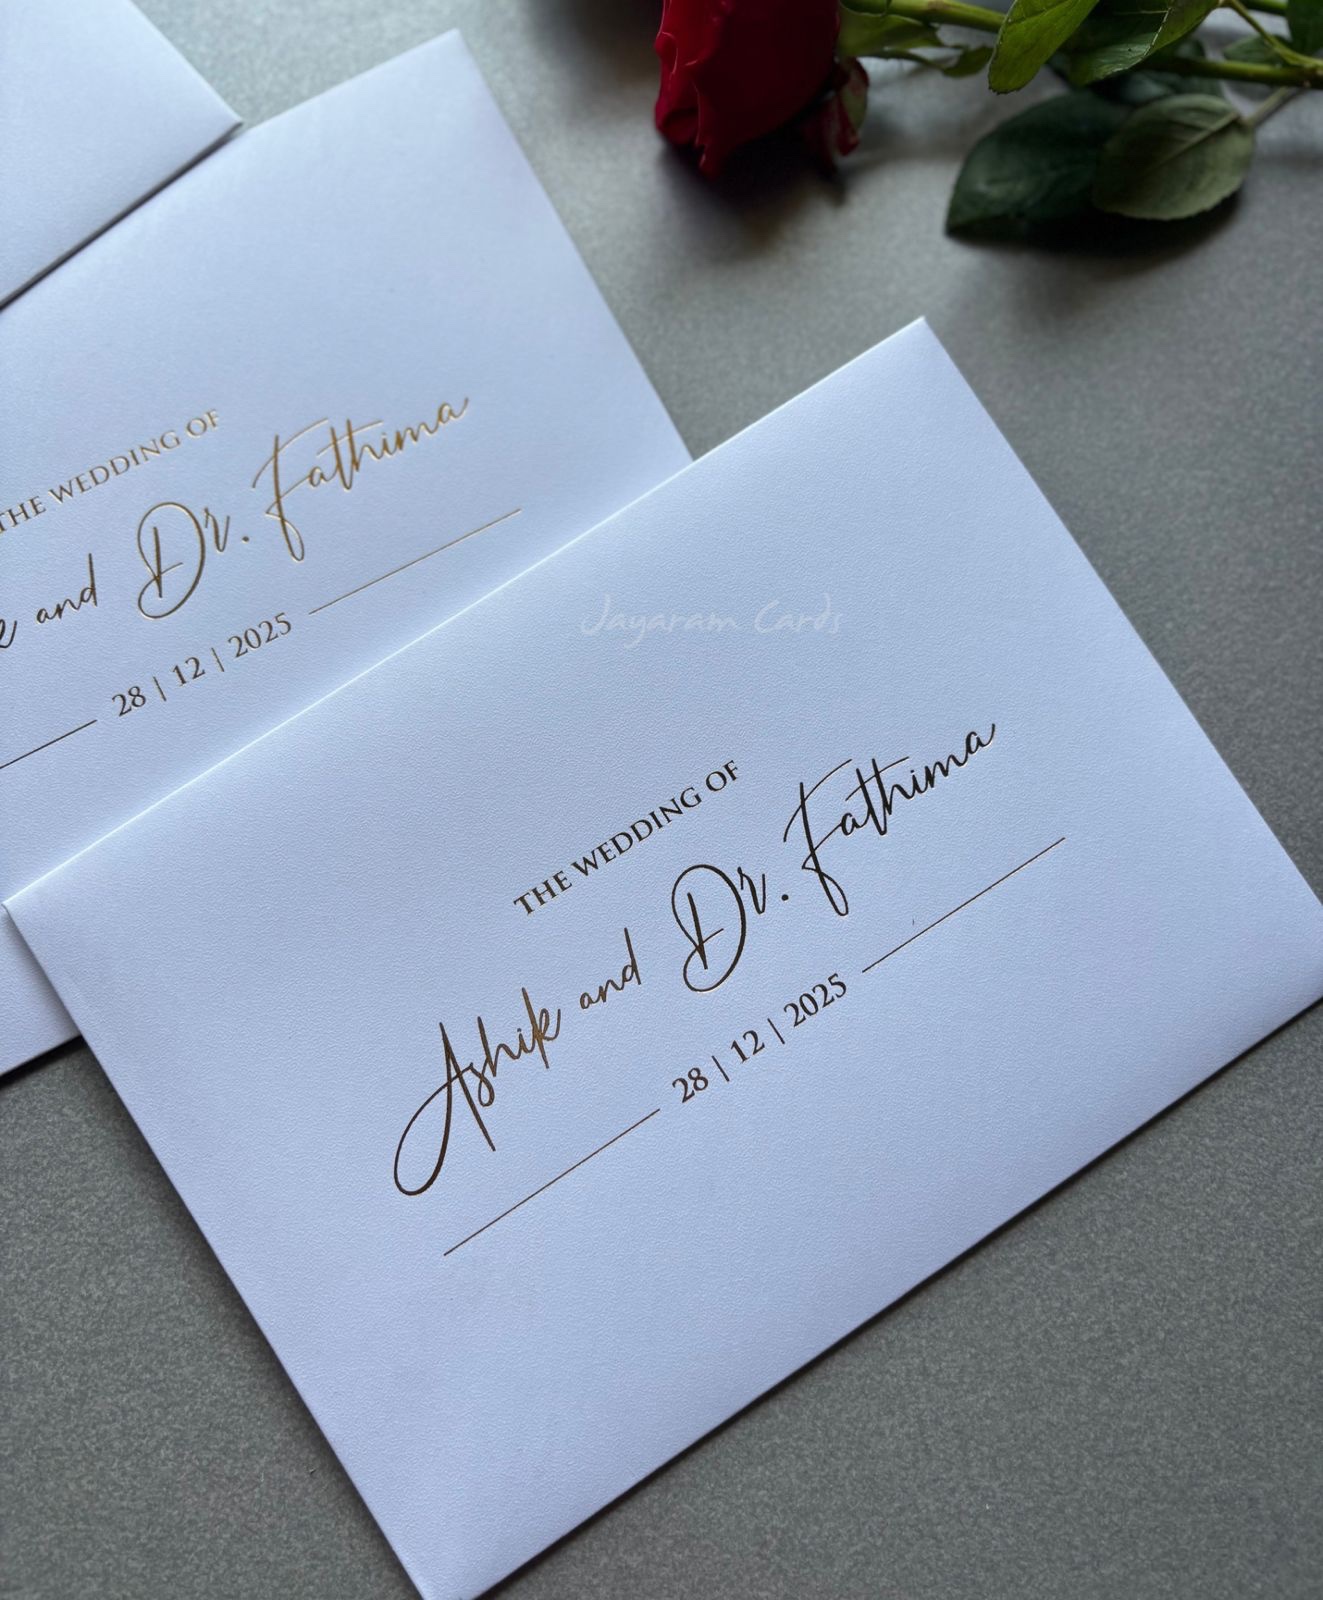 THE WEDDING OF
Dr. Fathima
and
28 | 12 | 2025
Jayaram Cards
THE WEDDING OF
Ashik and Dr. Fathima
28 | 12 | 2025